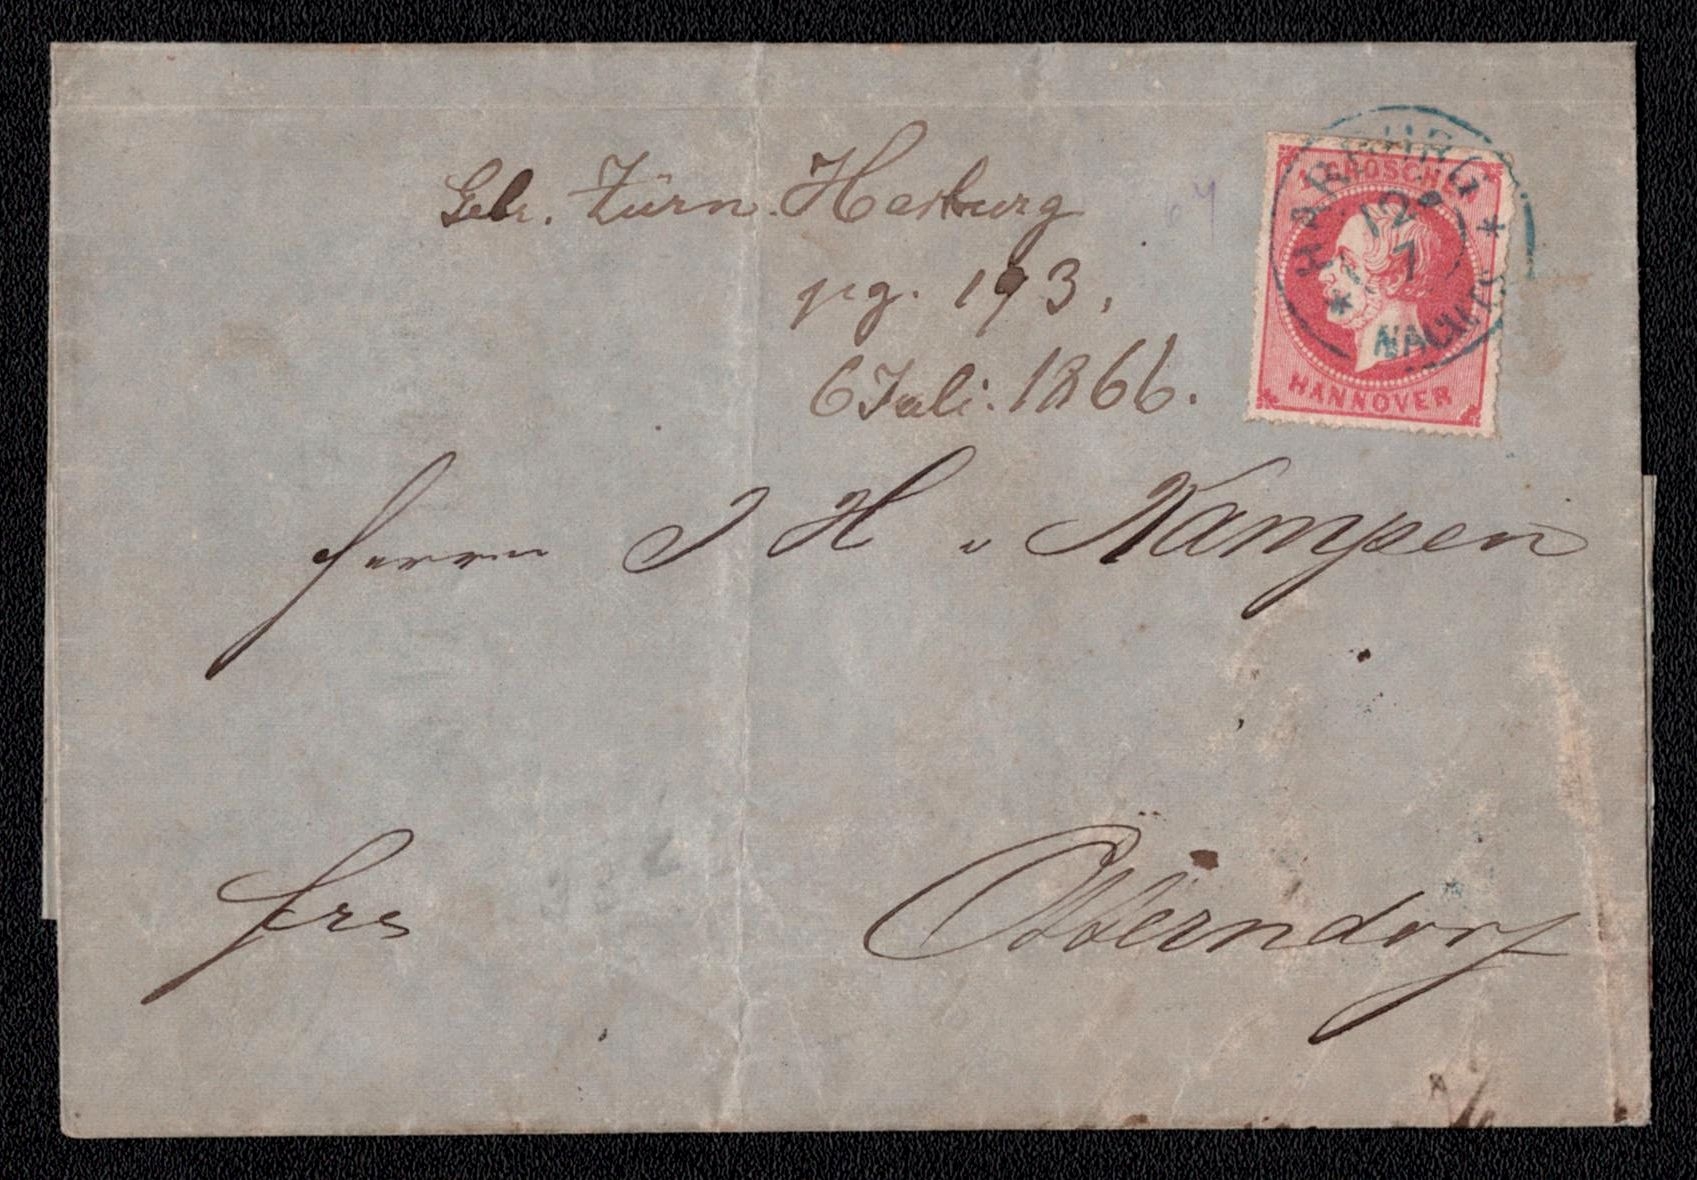 Gebr. Zürn. Harburg
pg. 193,
6 Juli. 1866.
67
GROSCH
HANNOVER
HARBURG
12
7
* NACHTS *
Herrn J H v Kampen
frc Otterndorf